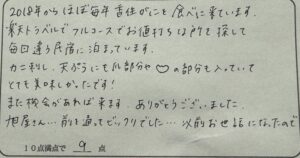 2018年からほぼ毎年香住がにを食べに来ています。
楽天トラベルでフルコースでお値打ちな所を探して
毎回違う民宿に泊まっています。
カニ刺し、天ぷらにも爪部分や♡の部分も入っていて
とても美味しかったです!
また機会があれば来ます。ありがとうございました。
旭屋さん…前を通ってビックリでした…以前お世話になったので
10点満点で 9 点